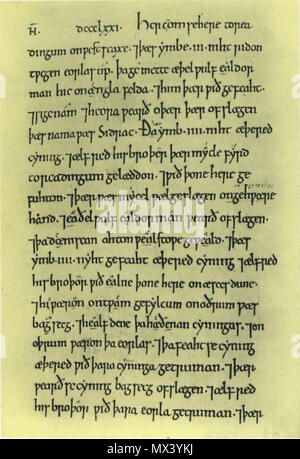 N̄. DCCCLXXI. Her com se here to rea
dingum on westseaxe. ⁊ þæs ymbe .iii. niht ridon
twegen eorlas up. þa gemette æþelwulf ealdor
man hie on ængla felda. ⁊ him þær wið gefeaht.
⁊ sige nam. ⁊ heora wearð oþær þær ofslægen
þæs nama wæs Sidrac. Ða ymb .iiii. niht æþered
cyning. ⁊ ælfred his broþer þær mycle fyrd
to readingum gelæddon. ⁊ wið þone here ge
fuhton. ⁊ þær wæs mycel wælgeslægen on gehwæþre
hand. ⁊ eaðelwulf ealdorman wearð ofslægen.
⁊ þa deniscan ahton wealstowe geweald. ⁊ þæs
ymb .iiii. nyht gefeaht æþered cyning ⁊ ælfred
his broþor wið ealne þone here on æsces dune.
⁊ hi wæron on twam gefylcum on oðrum wæs
bagsecg. ⁊ healfdene þa hæðenan cyningas. ⁊ on
oþrum wæron þa eorlas. ⁊ þa feaht se cyning
æþered wið þara cyninga getruman. ⁊ þær
wearð se cyning bagsecg ofslægen. ⁊ ælfred
his broþor wið þara eorla getruman. ⁊ þær
alamy
MX3YKJ
www.alamy.com